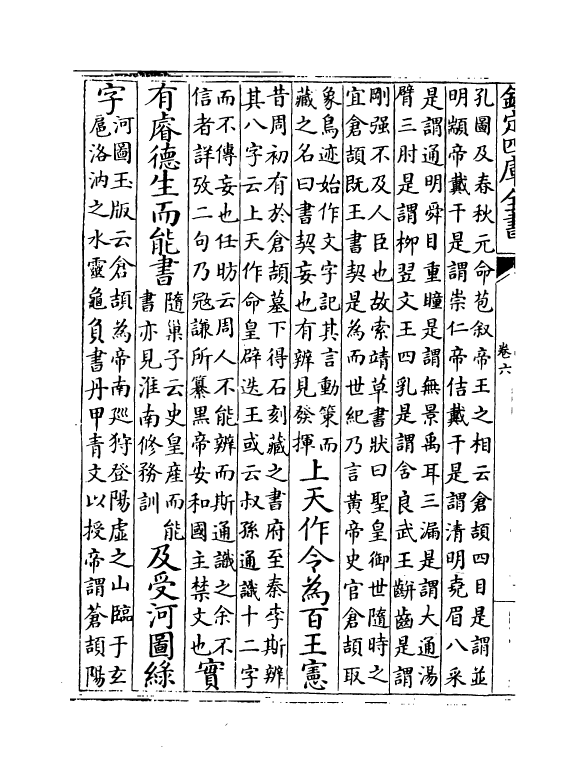 欽定四庫全書
卷六
孔圖及春秋元命苞叙帝王之相云倉頡四目是謂並
明顓帝戴干是謂崇仁帝佶戴干是謂清明堯眉八采
是謂通明舜目重瞳是謂無景禹耳三漏是謂大通湯
臂三肘是謂柳翌文王四乳是謂含良武王齒是謂
剛强不及人臣也故索靖草書狀曰聖皇御世隨時之
宜倉頡既王書契是為而世紀乃言黃帝史官倉頡取
象鳥迹始作文字記其言動策而
藏之名曰書契妄也有辨見發揮
上天作令為百王憲
昔周初有於倉頡墓下得石刻藏之書府至秦李斯辨
其八字云上天作命皇辟迭王或云叔孫通識十二字
而不傳妄也任昉云周人不能辨而斯通識之余不
信者詳攷二句乃冦謙所纂黑帝安和國主禁文也
實
有睿德生而能書
隨巢子云史皇産而能
書亦見淮南修務訓
及受河圖緑
字
河圖玉版云倉頡為帝南廵狩登陽虚之山臨于玄
扈洛汭之水靈龜負書丹甲青文以授帝謂蒼頡陽